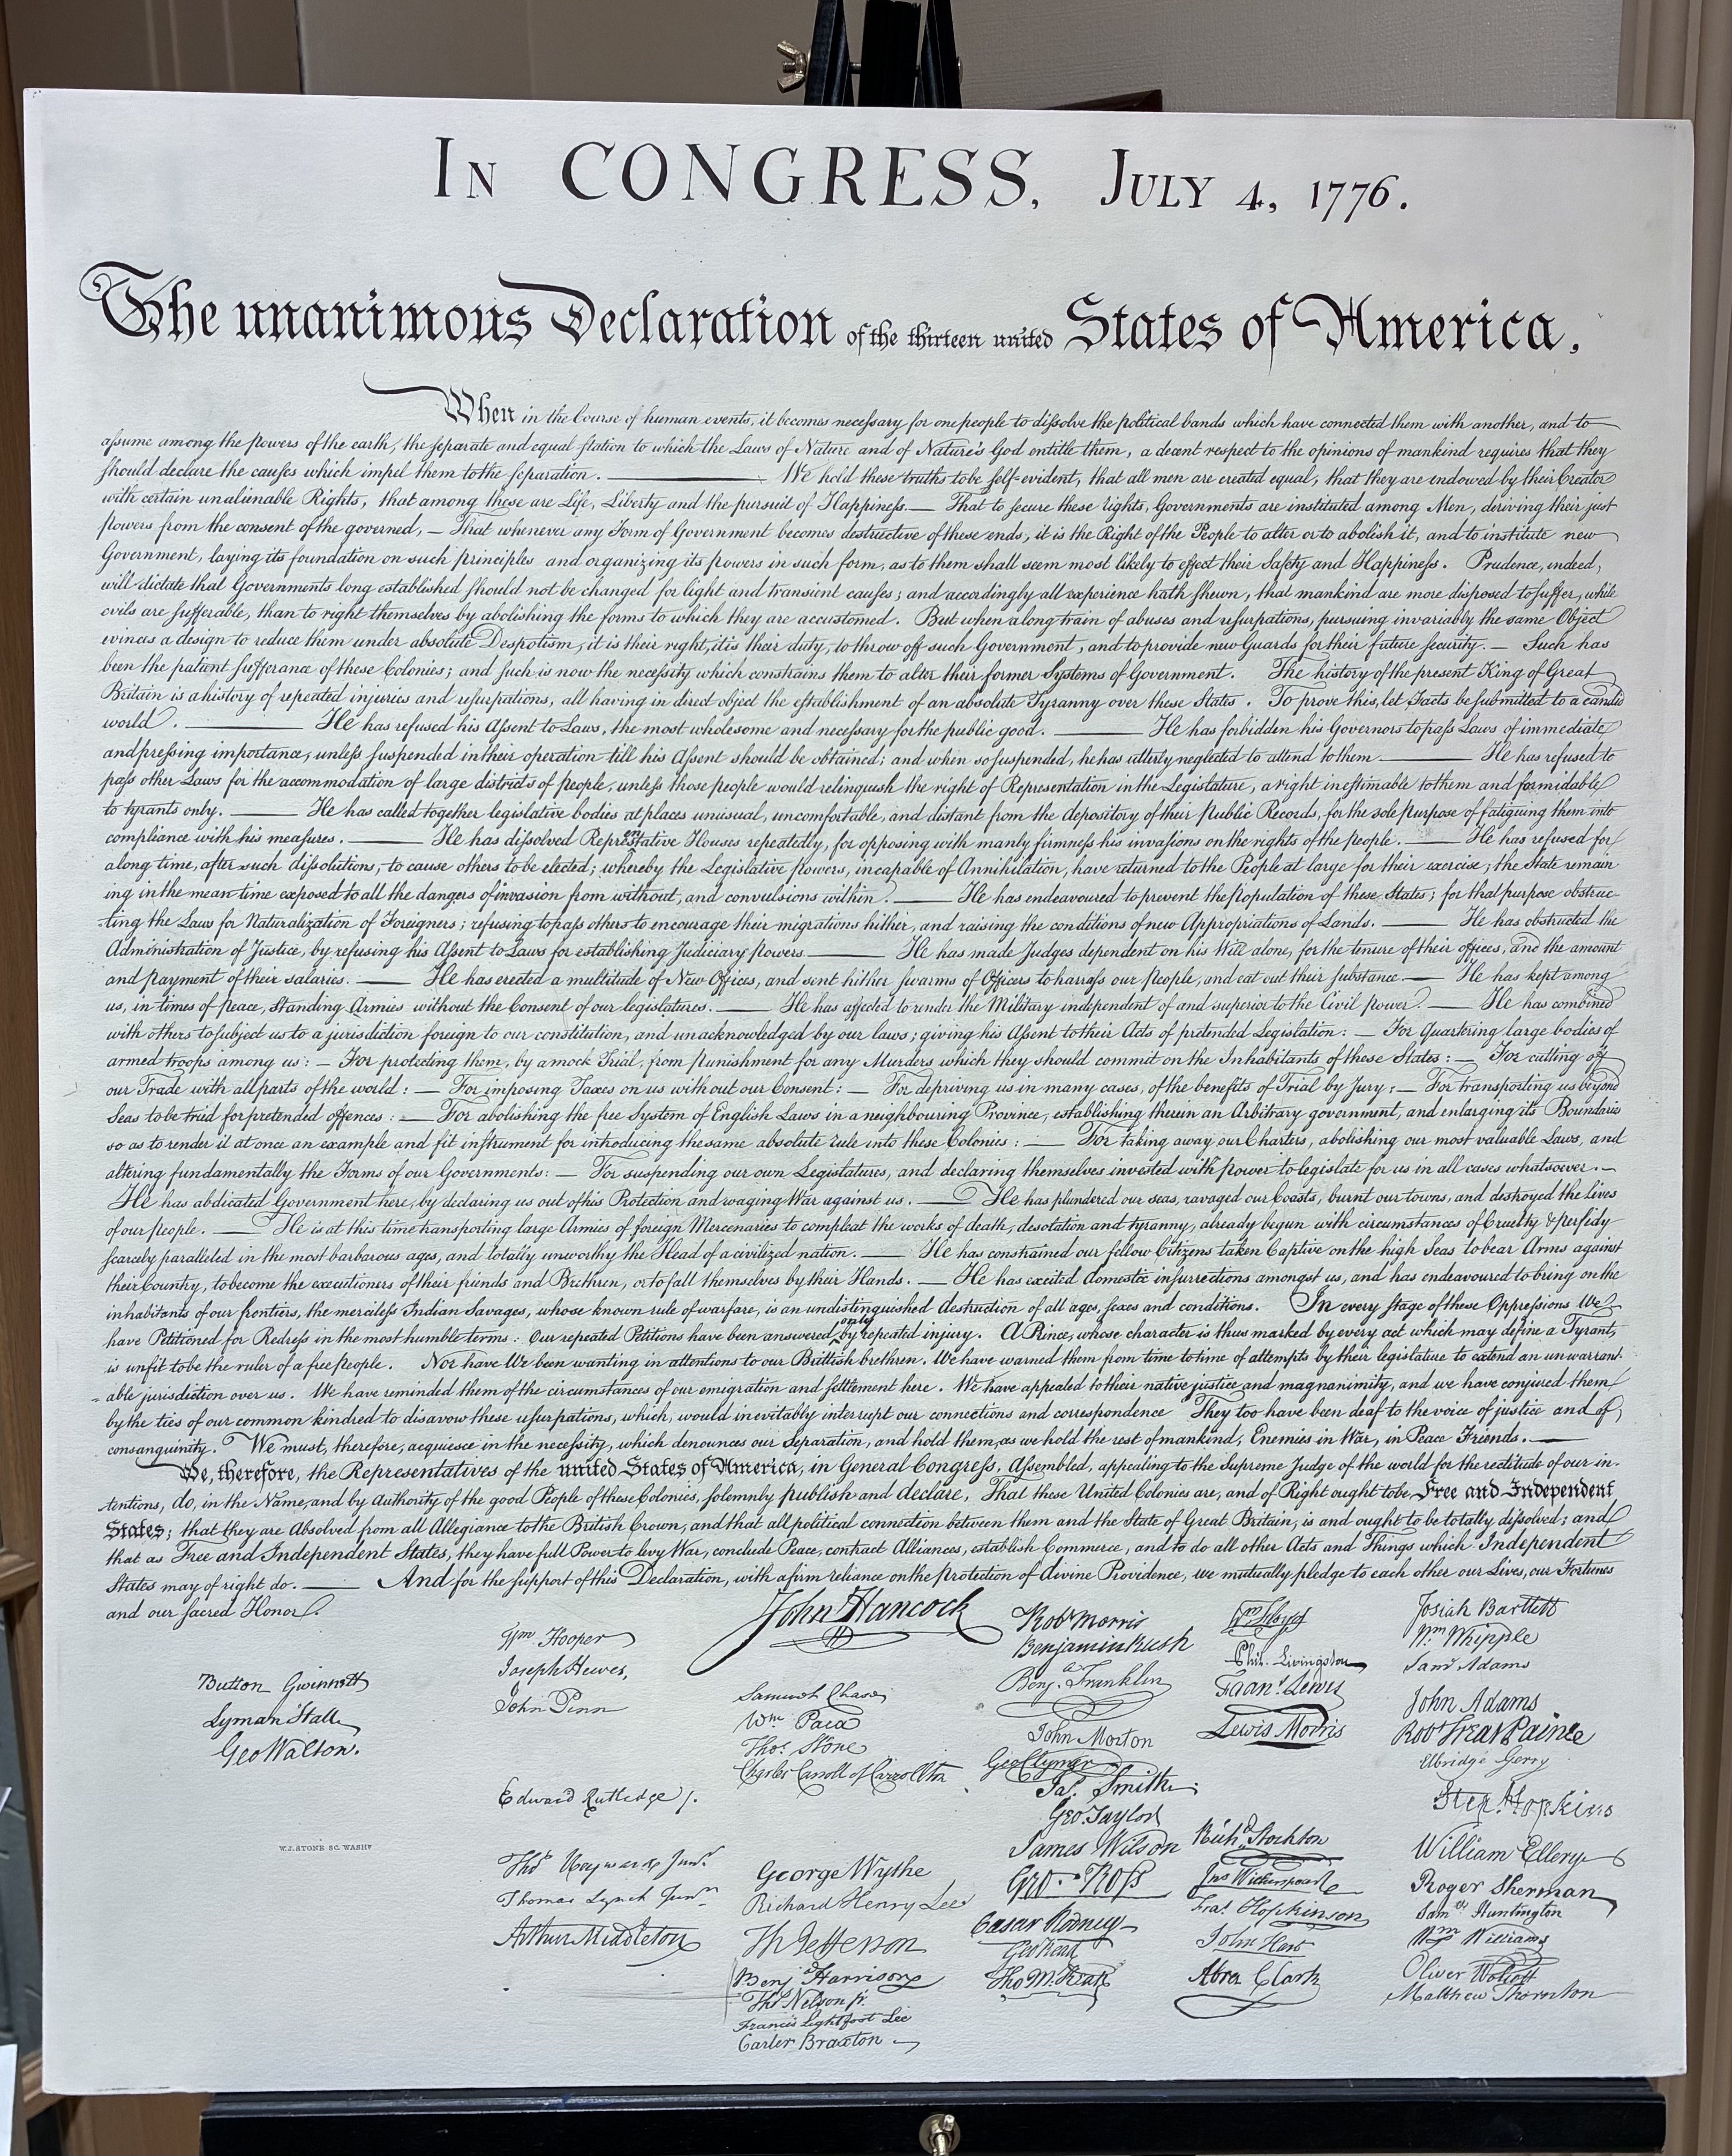 In CONGRESS, July 4, 1776.
The unanimous Declaration of the thirteen united States of America,
When in the Course of human events, it becomes necessary for one people to dissolve the political bands which have connected them with another, and to
assume among the powers of the earth, the separate and equal station to which the Laws of Nature and of Nature's God entitle them, a decent respect to the opinions of mankind requires that they
should declare the causes which impel them to the separation. ——— We hold these truths to be self-evident, that all men are created equal, that they are endowed by their Creator
with certain unalienable Rights, that among these are Life, Liberty and the pursuit of Happiness. — That to secure these rights, Governments are instituted among Men, deriving their just
powers from the consent of the governed, — That whenever any Form of Government becomes destructive of these ends, it is the Right of the People to alter or to abolish it, and to institute new
Government, laying its foundation on such principles and organizing its powers in such form, as to them shall seem most likely to effect their Safety and Happiness. Prudence, indeed,
will dictate that Governments long established should not be changed for light and transient causes; and accordingly all experience hath shewn, that mankind are more disposed to suffer, while
evils are sufferable, than to right themselves by abolishing the forms to which they are accustomed. But when a long train of abuses and usurpations, pursuing invariably the same Object
evinces a design to reduce them under absolute Despotism, it is their right, it is their duty, to throw off such Government, and to provide new Guards for their future security. — Such has
been the patient sufferance of these Colonies; and such is now the necessity which constrains them to alter their former Systems of Government. The history of the present King of Great
Britain is a history of repeated injuries and usurpations, all having in direct object the establishment of an absolute Tyranny over these States. To prove this, let Facts be submitted to a candid
world. ——— He has refused his Assent to Laws, the most wholesome and necessary for the public good. ——— He has forbidden his Governors to pass Laws of immediate
and pressing importance, unless suspended in their operation till his Assent should be obtained; and when so suspended, he has utterly neglected to attend to them. ——— He has refused to
pass other Laws for the accommodation of large districts of people, unless those people would relinquish the right of Representation in the Legislature, a right inestimable to them and formidable
to tyrants only. ——— He has called together legislative bodies at places unusual, uncomfortable, and distant from the depository of their Public Records, for the sole purpose of fatiguing them into
compliance with his measures. ——— He has dissolved Representative Houses repeatedly, for opposing with manly firmness his invasions on the rights of the people. ——— He has refused for
a long time, after such dissolutions, to cause others to be elected; whereby the Legislative powers, incapable of Annihilation, have returned to the People at large for their exercise; the State remain
ing in the mean time exposed to all the dangers of invasion from without, and convulsions within. ——— He has endeavoured to prevent the Population of these States; for that purpose obstruc-
ting the Laws for Naturalization of Foreigners; refusing to pass others to encourage their migrations hither, and raising the conditions of new Appropriations of Lands. ——— He has obstructed the
Administration of Justice, by refusing his Assent to Laws for establishing Judiciary powers. ——— He has made Judges dependent on his Will alone, for the tenure of their offices, and the amount
and payment of their salaries. ——— He has erected a multitude of New Offices, and sent hither swarms of Officers to harrass our People, and eat out their substance. — He has kept among
us, in times of peace, Standing Armies without the Consent of our legislatures. ——— He has affected to render the Military independent of and superior to the Civil power. — He has combined
with others to subject us to a jurisdiction foreign to our constitution, and unacknowledged by our laws; giving his Assent to their Acts of pretended Legislation: — For Quartering large bodies of
armed troops among us: — For protecting them, by a mock Trial, from punishment for any Murders which they should commit on the Inhabitants of these States: — For cutting off
our Trade with all parts of the world: — For imposing Taxes on us without our Consent: — For depriving us in many cases, of the benefits of Trial by Jury: — For transporting us beyond
Seas to be tried for pretended offences: — For abolishing the free System of English Laws in a neighbouring Province, establishing therein an Arbitrary government, and enlarging its Boundaries
so as to render it at once an example and fit instrument for introducing the same absolute rule into these Colonies: — For taking away our Charters, abolishing our most valuable Laws, and
altering fundamentally the Forms of our Governments: — For suspending our own Legislatures, and declaring themselves invested with power to legislate for us in all cases whatsoever. —
He has abdicated Government here, by declaring us out of his Protection and waging War against us. — He has plundered our seas, ravaged our Coasts, burnt our towns, and destroyed the lives
of our people. — He is at this time transporting large Armies of foreign Mercenaries to compleat the works of death, desolation and tyranny, already begun with circumstances of Cruelty & perfidy
scarcely paralleled in the most barbarous ages, and totally unworthy the Head of a civilized nation. — He has constrained our fellow Citizens taken Captive on the high Seas to bear Arms against
their Country, to become the executioners of their friends and Brethren, or to fall themselves by their Hands. — He has excited domestic insurrections amongst us, and has endeavoured to bring on the
inhabitants of our frontiers, the merciless Indian Savages, whose known rule of warfare, is an undistinguished destruction of all ages, sexes and conditions. In every stage of these Oppressions We
have Petitioned for Redress in the most humble terms: Our repeated Petitions have been answered only by repeated injury. A Prince, whose character is thus marked by every act which may define a Tyrant,
is unfit to be the ruler of a free people. Nor have We been wanting in attentions to our Brittish brethren. We have warned them from time to time of attempts by their legislature to extend an unwarrant-
able jurisdiction over us. We have reminded them of the circumstances of our emigration and settlement here. We have appealed to their native justice and magnanimity, and we have conjured them
by the ties of our common kindred to disavow these usurpations, which, would inevitably interrupt our connections and correspondence They too have been deaf to the voice of justice and of
consanguinity. We must, therefore, acquiesce in the necessity, which denounces our Separation, and hold them, as we hold the rest of mankind, Enemies in War, in Peace Friends. —
We, therefore, the Representatives of the united States of America, in General Congress, Assembled, appealing to the Supreme Judge of the world for the rectitude of our in-
tentions, do, in the Name, and by Authority of the good People of these Colonies, solemnly publish and declare, That these United Colonies are, and of Right ought to be Free and Independent
States; that they are Absolved from all Allegiance to the British Crown, and that all political connection between them and the State of Great Britain, is and ought to be totally dissolved; and
that as Free and Independent States, they have full Power to levy War, conclude Peace, contract Alliances, establish Commerce, and to do all other Acts and Things which Independent
States may of right do. — And for the support of this Declaration, with a firm reliance on the protection of divine Providence, we mutually pledge to each other our Lives, our Fortunes
and our sacred Honor.
Button Gwinnett
Lyman Hall
Geo Walton.
Wm Hooper
Joseph Hewes,
John Penn
Edward Rutledge /.
Thos Heyward Junr.
Thomas Lynch Junr
Arthur Middleton
John Hancock
Samuel Chase
Wm Paca
Thos. Stone
Charles Carroll of Carrollton
George Wythe
Richard Henry Lee
Th Jefferson
Benj Harrison
Thos Nelson jr.
Francis Lightfoot Lee
Carter Braxton
Robt Morris
Benjamin Rush
Benja. Franklin
John Morton
Geo Clymer
Jas. Smith.
Geo. Taylor
James Wilson
Geo. Ross
Caesar Rodney
Geo Read
Tho M:Kean
Wm Floyd
Phil. Livingston
Frans. Lewis
Lewis Morris
Richd. Stockton
Jno Witherspoon
Fras. Hopkinson
John Hart
Abra Clark
Josiah Bartlett
Wm Whipple
Saml Adams
John Adams
Robt Treat Paine
Elbridge Gerry
Step. Hopkins
William Ellery
Roger Sherman
Saml Huntington
Wm Williams
Oliver Wolcott
Matthew Thornton
W. J. STONE SC. WASHN.